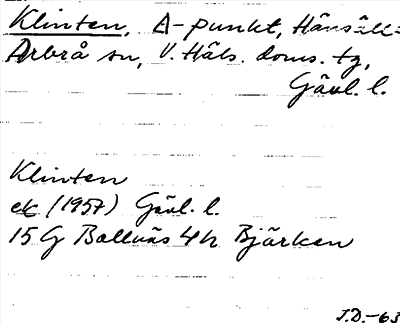 Klinten, Δ-punkt, Hänsätt=
Arbrå sn, V. Häls. doms. tg,
Gävl. l.
Klinten
ek (1957) Gävl. l.
15 G Bollnäs 4 h Bjärken
J.D.-63